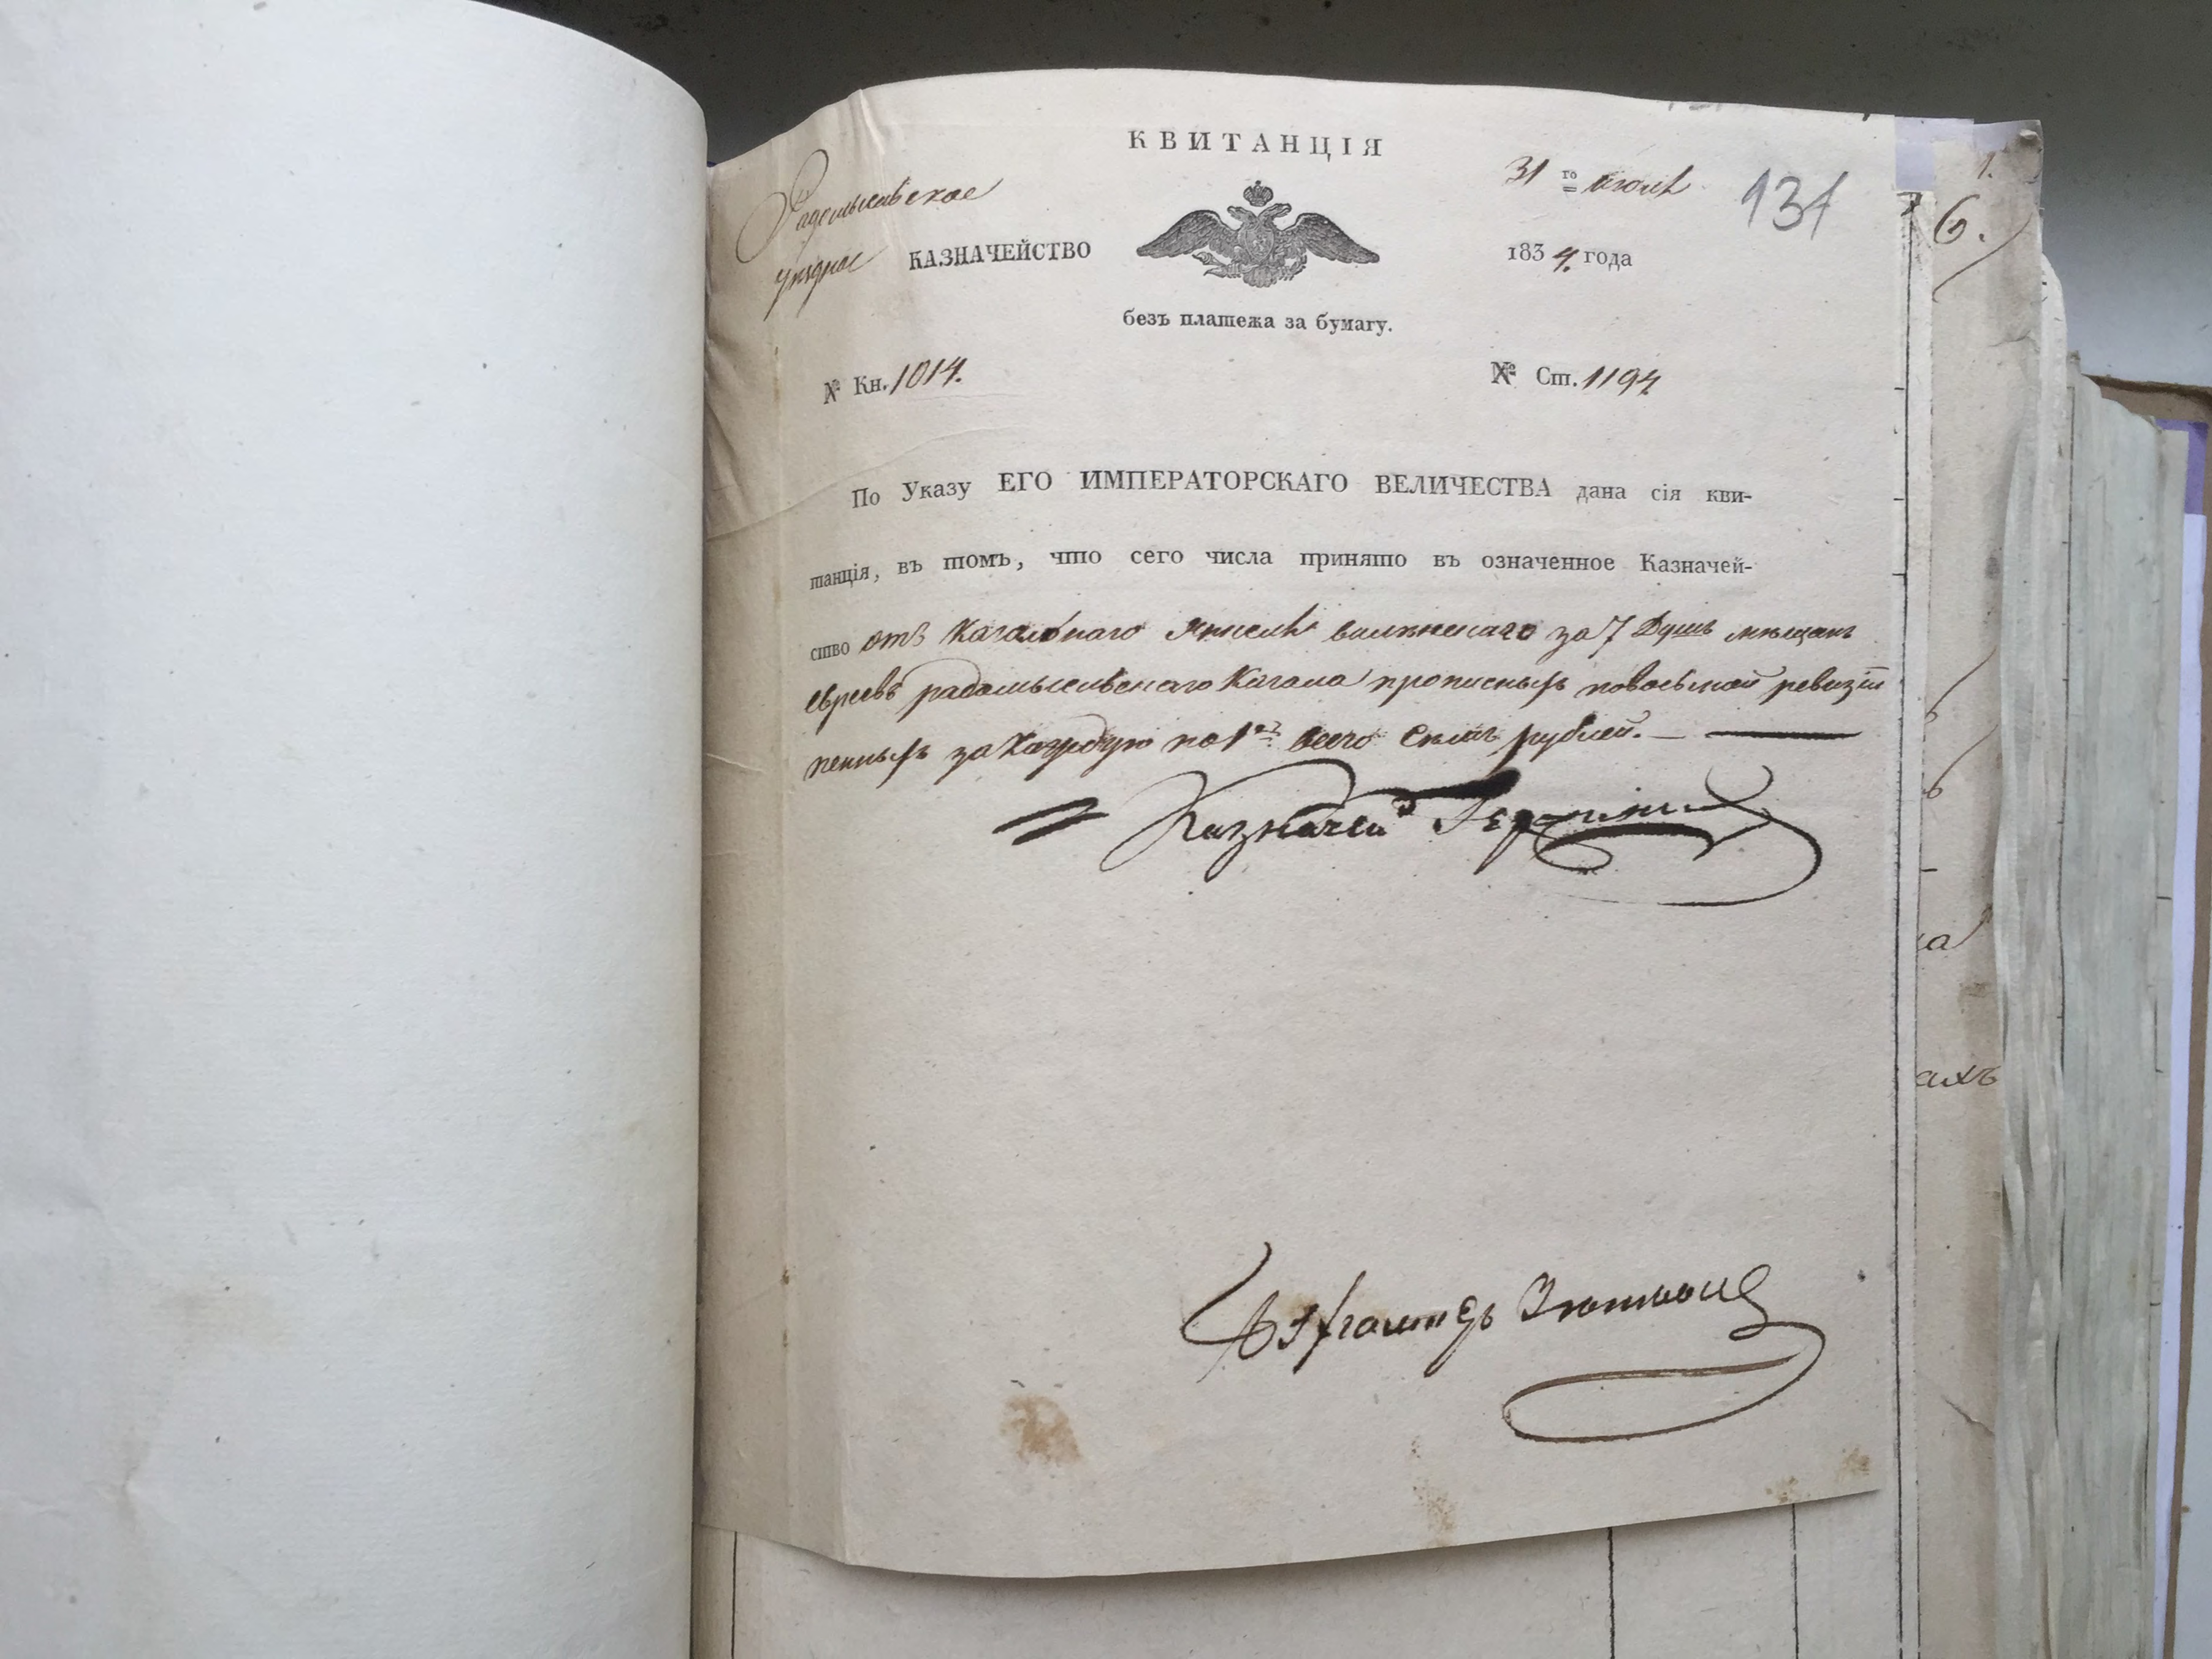 КВИТАНЦІЯ
Радомысльское
уѣздное КАЗНАЧЕЙСТВО
31 го июля
131
1834. года
безъ платежа за бумагу.
№ Кн. 1014.
№ Ст. 1194.
По Указу ЕГО ИМПЕРАТОРСКАГО ВЕЛИЧЕСТВА дана сія кви-
танція, въ томъ, что сего числа принято въ означенное Казначей-
ство отъ Кагальнаго Янкеля за 7 Душъ мѣщанъ
евреевъ радомысльскаго Кагала прописныхъ повосьмой ревизіи
пенныхъ за Каждую по 1 всего Семь рублей.
Казначей
1.
6.
ва
ахъ